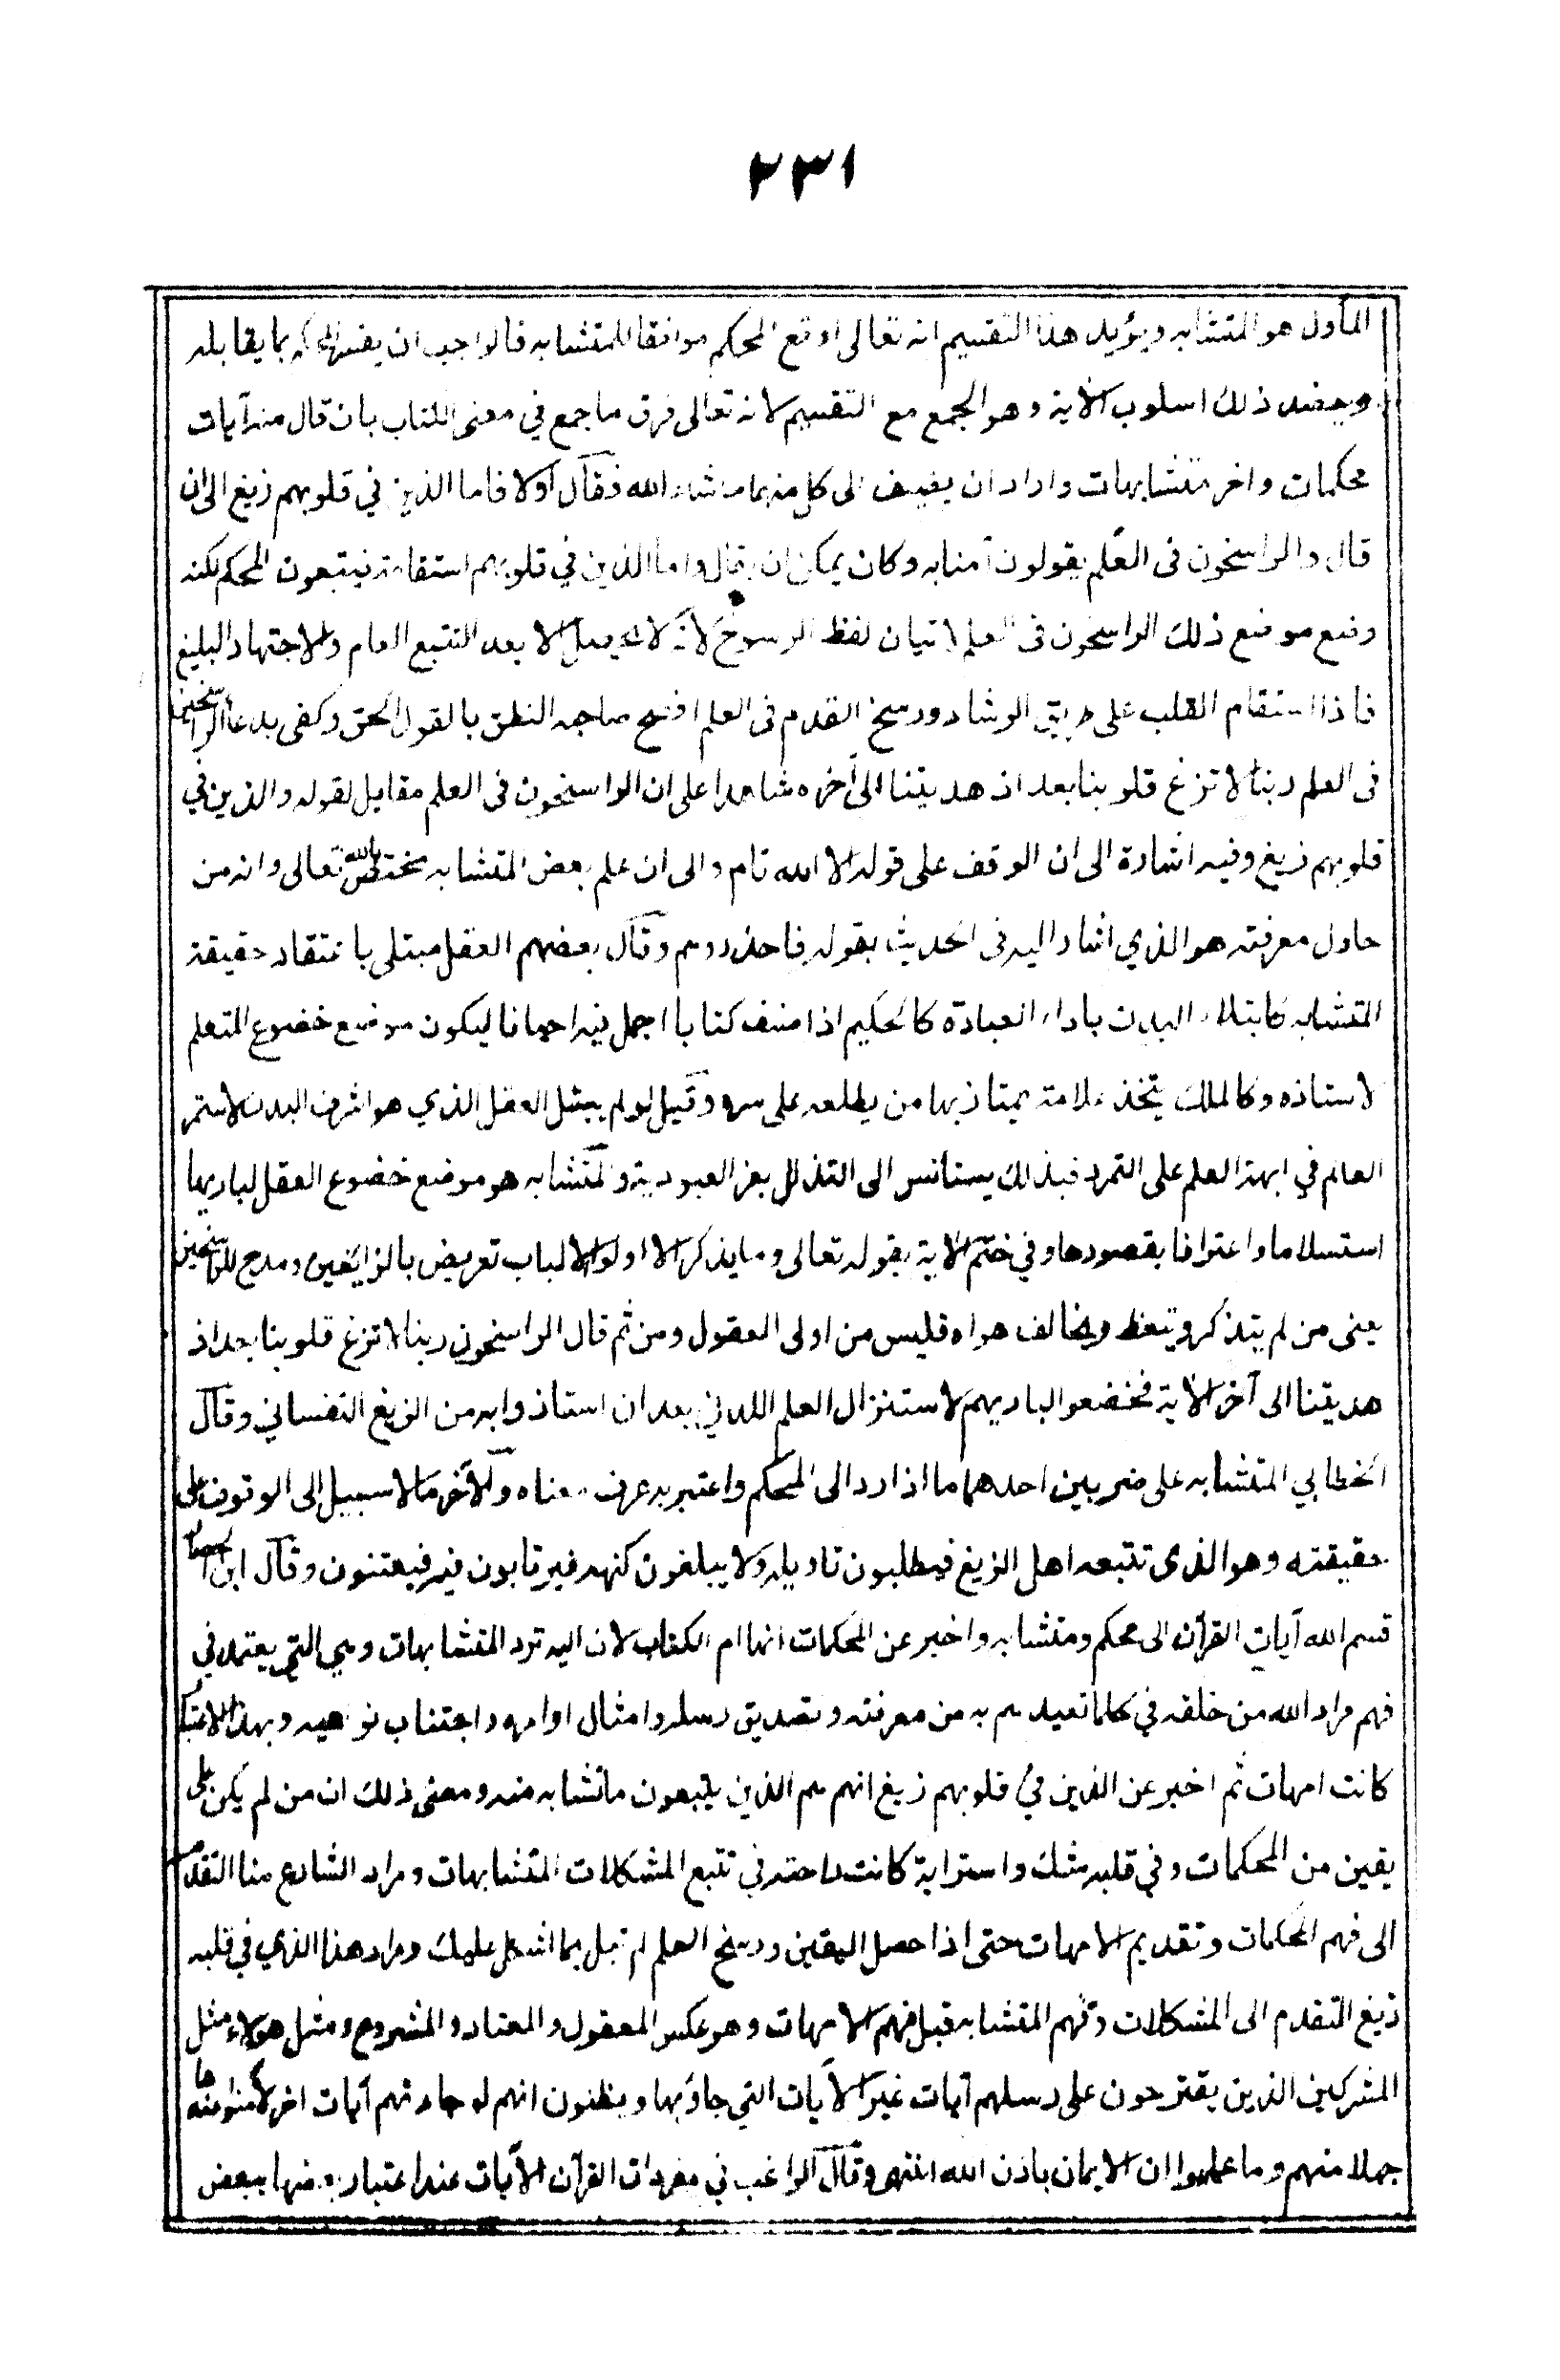 ٢٣١
المأول هو المتشابه ويؤيد هذا التقسيم انه تعالى اوقع المحكم موافقا للمتشابه فالواجب ان يفسر المحكم بما يقابله
ويعضد ذلك اسلوب الآية وهو الجمع مع التقسيم لانه تعالى فرق ما جمع في معنى الكتاب بان قال منه آيات
محكمات واخر متشابهات واراد ان يضيف الى كل منهما ما شاء الله فقال اولا فاما الذين في قلوبهم زيغ الى ان
قال والراسخون فى العلم يقولون آمنا به وكان يمكن ان يقال واما الذين في قلوبهم استقامة فيتبعون المحكم لكنه
وضع موضع ذلك الراسخون فى العلم لاتيان لفظ الرسوخ لانه لا يحصل الا بعد التتبع العام والاجتهاد البليغ
فاذا استقام القلب على طريق الرشاد ورسخ القدم فى العلم افصح صاحبه النطق بالقول الحق وكفى بدعاء الراسخين
فى العلم ربنا لا تزغ قلوبنا بعد اذ هديتنا الى آخره شاهدا على ان الراسخون فى العلم مقابل لقوله والذين في
قلوبهم زيغ وفيه اشارة الى ان الوقف على قوله الا الله تام والى ان علم بعض المتشابه مختص بالله تعالى وانه من
حاول معرفته هو الذي اشار اليه فى الحديث بقوله فاحذروهم وقال بعضهم العقل مبتلى باعتقاد حقيقة
المتشابه كابتلاء البدن باداء العبادة كالحكيم اذا صنف كتابا اجمل فيه احيانا ليكون موضع خضوع المتعلم
لاستاذه وكالملك يتخذ علامة يمتاز بها من يطلعه على سره وقيل لو لم يبتل العقل الذي هو اشرف البدن لاستمر
العالم في ابهة العلم على التمرد فبذلك يستأنس الى التذلل بعز العبودية والمتشابه هو موضع خضوع العقل لباريها
استسلاما واعترافا بقصورها وفي ختم الآية بقوله تعالى وما يذكر الا اولوا الالباب تعريض بالزائغين ومدح للراسخين
يعنى من لم يتذكر ويتعظ ويخالف هواه فليس من اولى العقول ومن ثم قال الراسخون ربنا لا تزغ قلوبنا بعد اذ
هديتنا الى آخر الآية فخضعوا لباريهم لاستنزال العلم اللدني بعد ان استاذوا به من الزيغ النفساني وقال
الخطابي المتشابه على ضربين احدهما ما اذا رد الى المحكم واعتبر به عرف معناه والآخر ما لا سبيل الى الوقوف على
حقيقته وهو الذى تتبعه اهل الزيغ فيطلبون تاويله ولا يبلغون كنهه فيرتابون فيه فيفتنون وقال ابن الحصار
قسم الله آيات القرآن الى محكم ومتشابه واخبر عن المحكمات انها ام الكتاب لان اليه ترد المتشابهات وهي التي يعتمد في
فهم مراد الله من خلقه في كلما تعبدهم به من معرفته وتصديق رسله وامتثال اوامره واجتناب نواهيه وبهذا الاعتبار
كانت امهات ثم اخبر عن الذين في قلوبهم زيغ انهم هم الذين يتبعون ما تشابه منه ومعنى ذلك ان من لم يكن على
يقين من المحكمات وفي قلبه شك واسترابة كانت راحته في تتبع المشكلات المتشابهات ومراد الشارع منا التقدم
الى فهم المحكمات وتقديم الامهات حتى اذا حصل اليقين ورسخ العلم لم تبل بما اشكل عليك ومراد هذا الذي في قلبه
زيغ التقدم الى المشكلات وفهم المتشابه قبل فهم الامهات وهو عكس المعقول والمعتاد والمشروع ومثل هؤلاء مثل
المشركين الذين يقترحون على رسلهم آيات غير الآيات التي جاؤا بها ويظنون انهم لو جاءتهم آيات اخر لآمنوا عندها
جهلا منهم وما علموا ان الايمان باذن الله انتهى وقال الراغب في مفردات القرآن الآيات عند اعتبار بعضها ببعض